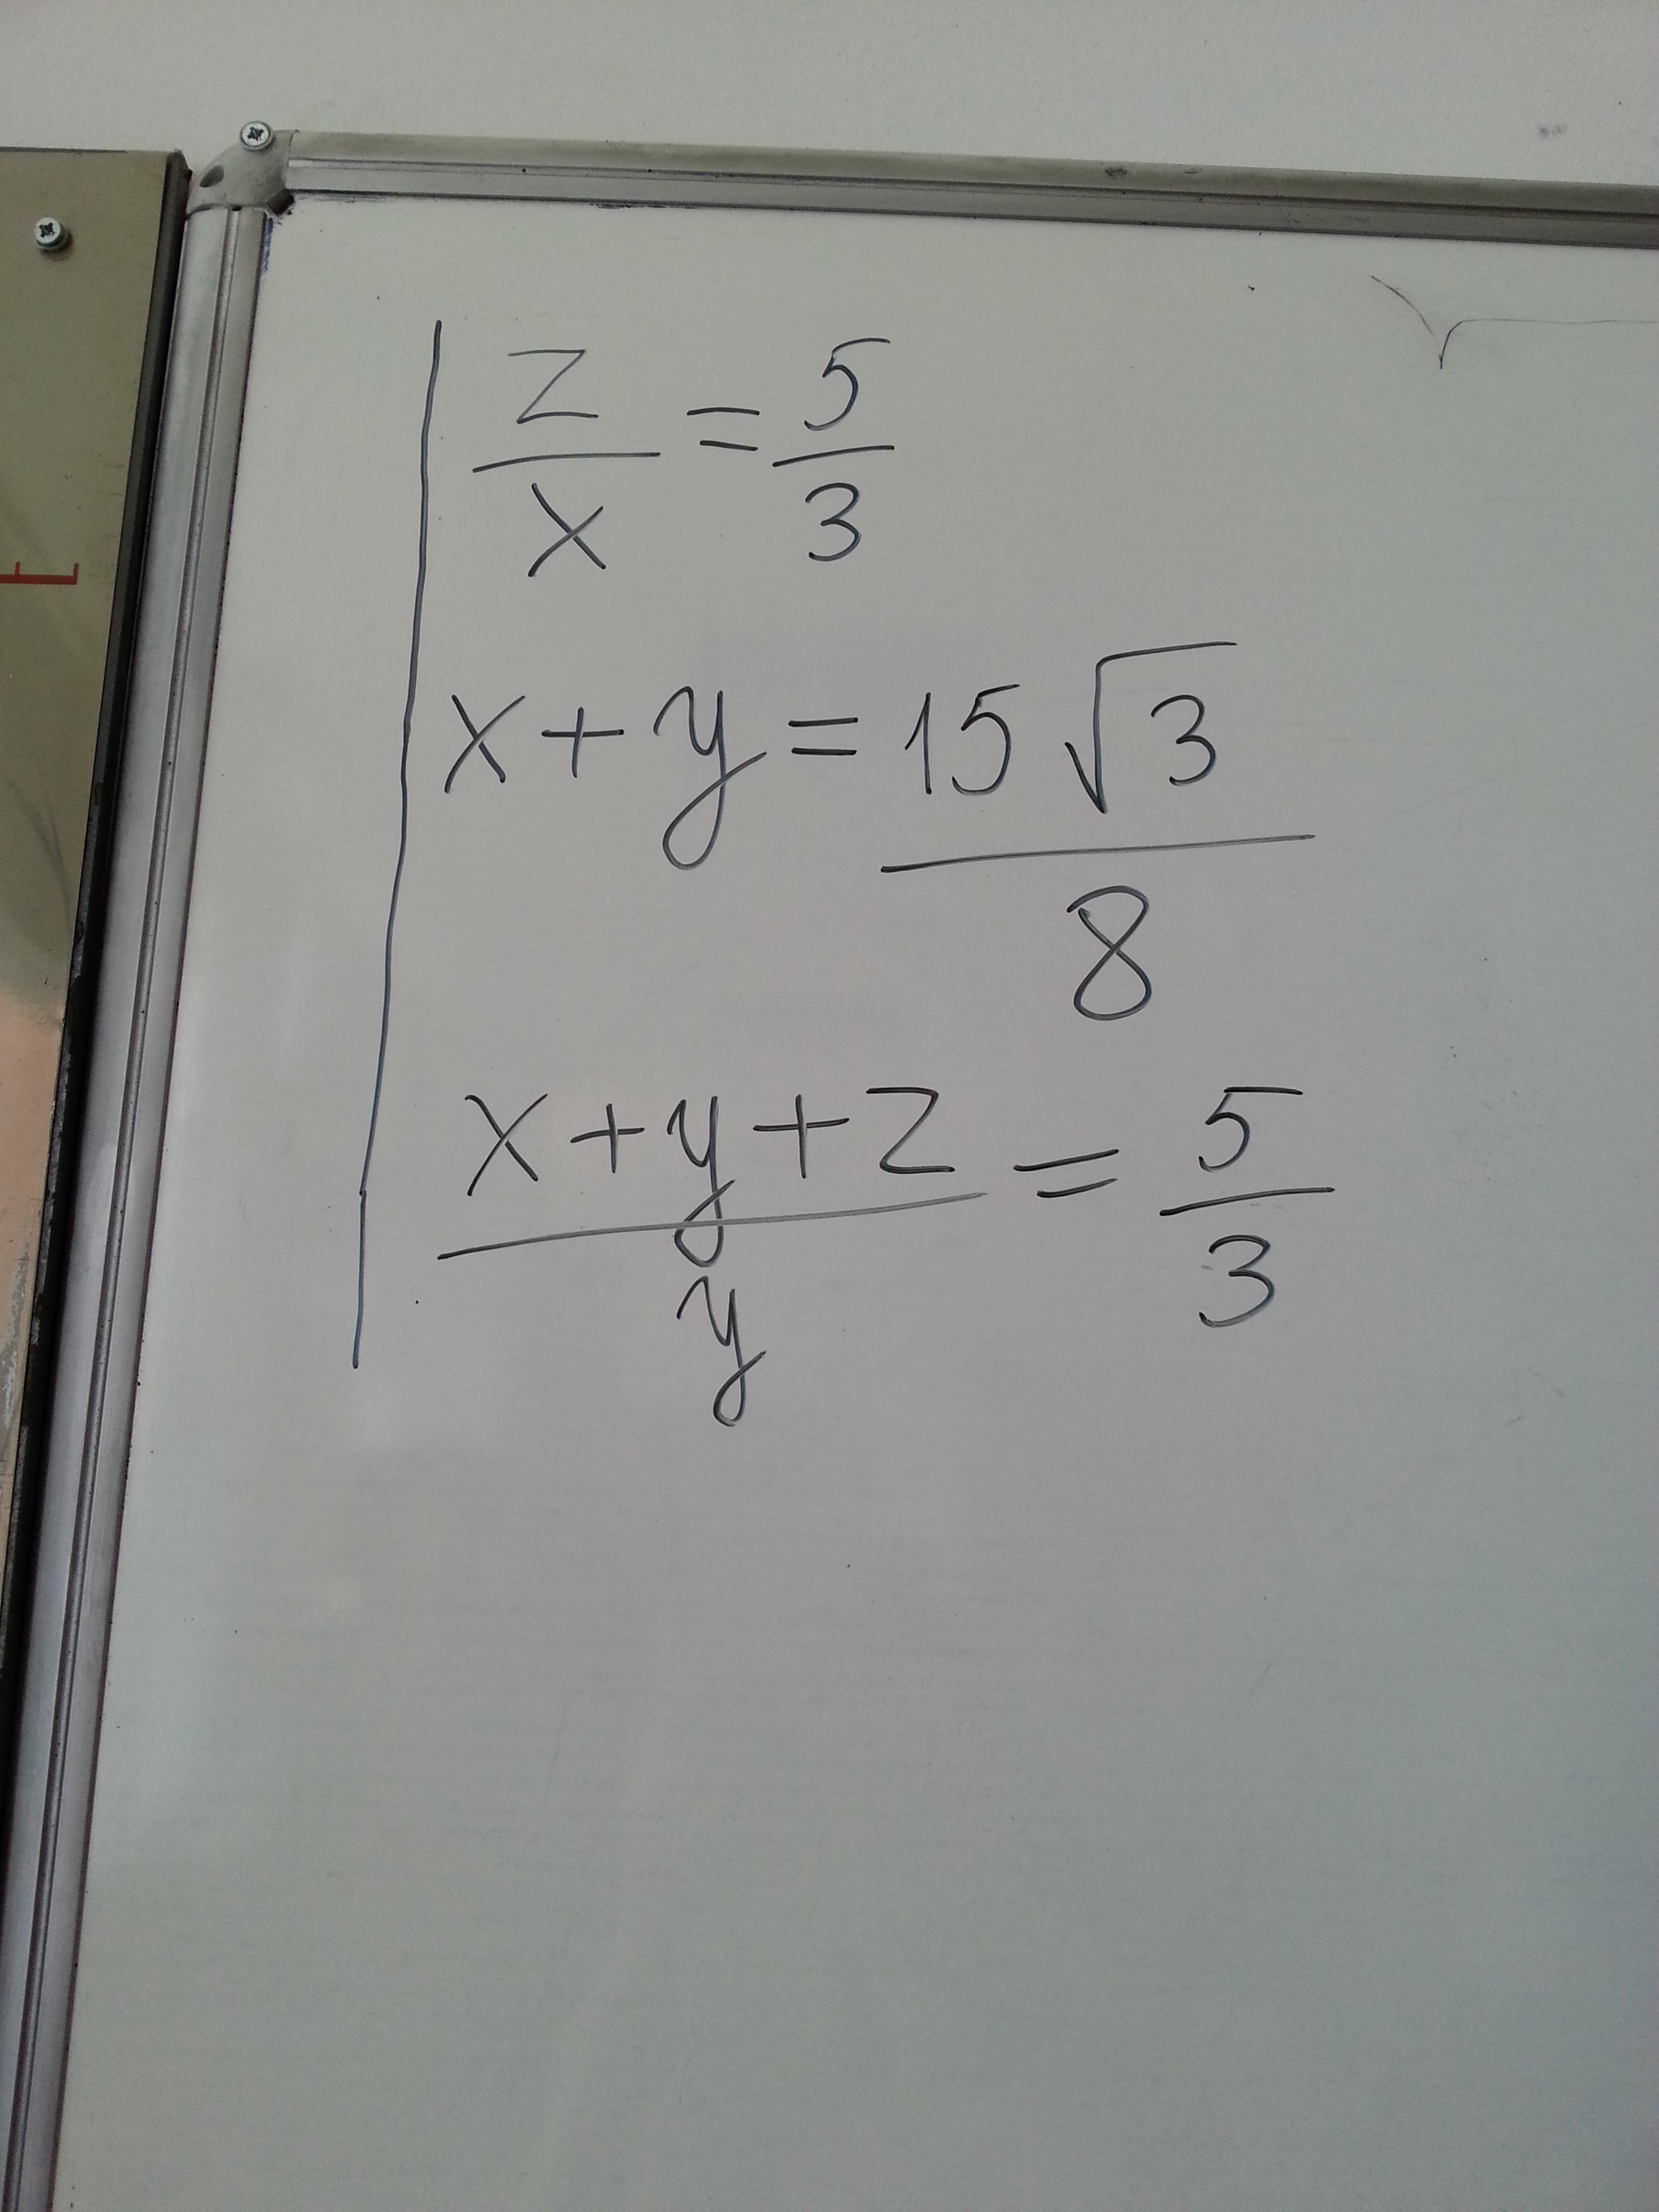 z/x = 5/3
x + y = 15√3/8
x + y + z/y = 5/3